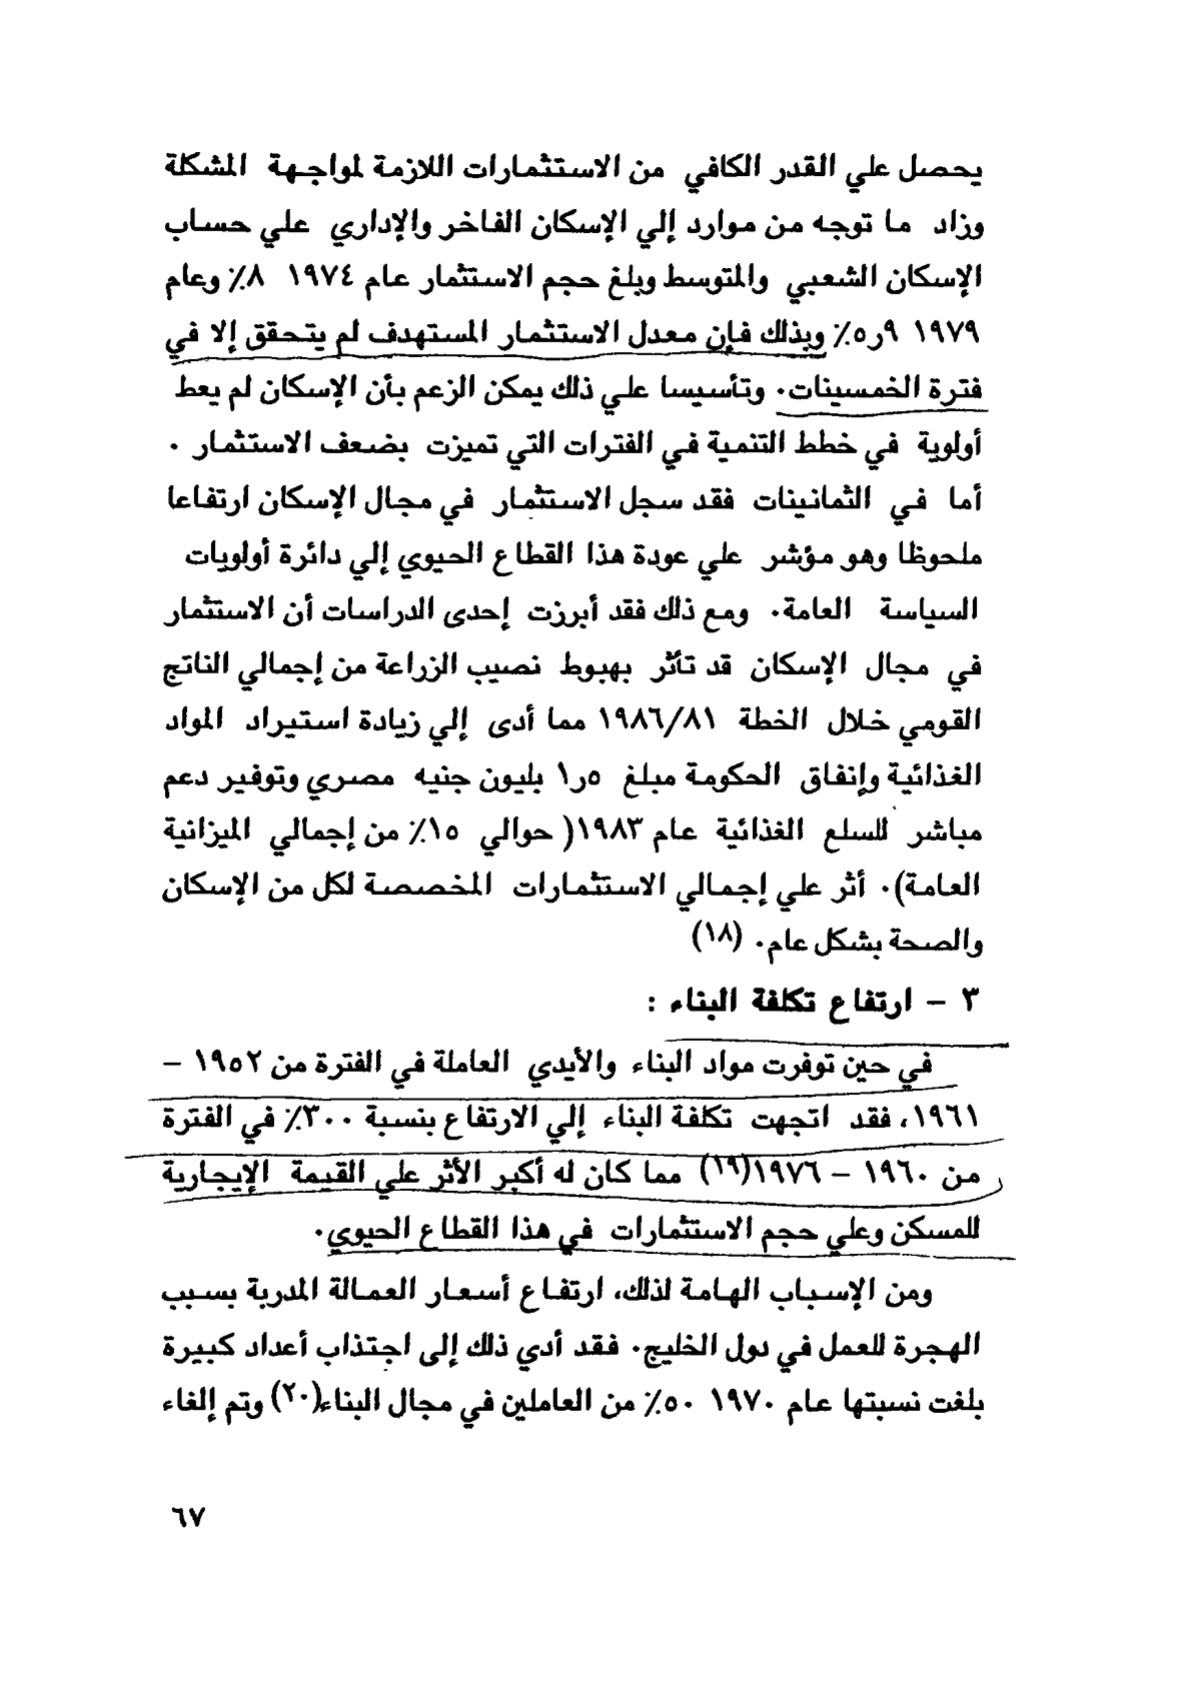 يحصل علي القدر الكافي من الاستثمارات اللازمة لمواجهة المشكلة
وزاد ما توجه من موارد إلي الإسكان الفاخر والإداري علي حساب
الإسكان الشعبي والمتوسط وبلغ حجم الاستثمار عام ١٩٧٤ ٨٪ وعام
١٩٧٩ ٩ر٥٪ وبذلك فإن معدل الاستثمار المستهدف لم يتحقق إلا في
فترة الخمسينات. وتأسيسا علي ذلك يمكن الزعم بأن الإسكان لم يعط
أولوية في خطط التنمية في الفترات التي تميزت بضعف الاستثمار .
أما في الثمانينات فقد سجل الاستثمار في مجال الإسكان ارتفاعا
ملحوظا وهو مؤشر علي عودة هذا القطاع الحيوي إلي دائرة أولويات
السياسة العامة. ومع ذلك فقد أبرزت إحدى الدراسات أن الاستثمار
في مجال الإسكان قد تأثر بهبوط نصيب الزراعة من إجمالي الناتج
القومي خلال الخطة ١٩٨٦/٨١ مما أدى إلي زيادة استيراد المواد
الغذائية وإنفاق الحكومة مبلغ ٥ر١ بليون جنيه مصري وتوفير دعم
مباشر للسلع الغذائية عام ١٩٨٣( حوالي ١٥٪ من إجمالي الميزانية
العامة). أثر علي إجمالي الاستثمارات المخصصة لكل من الإسكان
والصحة بشكل عام. (١٨)
٣ – ارتفاع تكلفة البناء :
في حين توفرت مواد البناء والأيدي العاملة في الفترة من ١٩٥٢ –
١٩٦١، فقد اتجهت تكلفة البناء إلي الارتفاع بنسبة ٣٠٠٪ في الفترة
من ١٩٦٠ – ١٩٧٦(١٩) مما كان له أكبر الأثر علي القيمة الإيجارية
للمسكن وعلي حجم الاستثمارات في هذا القطاع الحيوي.
ومن الإسباب الهامة لذلك، ارتفاع أسعار العمالة المدربة بسبب
الهجرة للعمل في دول الخليج. فقد أدي ذلك إلى اجتذاب أعداد كبيرة
بلغت نسبتها عام ١٩٧٠ ٥٠٪ من العاملين في مجال البناء(٢٠) وتم إلغاء
٦٧